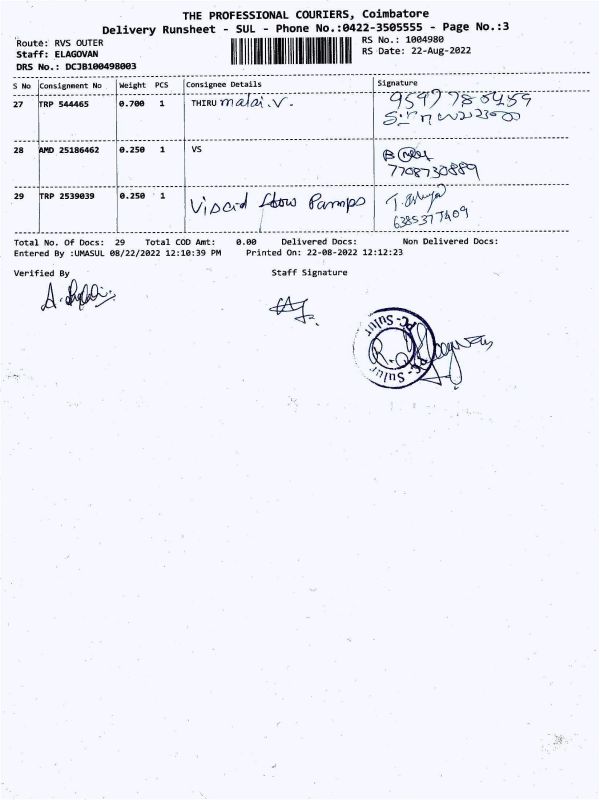 THE PROFESSIONAL COURIERS, Coimbatore
Delivery Runsheet - SUL - Phone No.:0422-3505555 - Page No.:3
Route: RVS OUTER
RS No.: 1004980
Staff: ELAGOVAN
RS Date: 22-Aug-2022
DRS No.: DCJB100498003
S No Consignment No Weight PCS Consignee Details Signature
27 TRP 544465 0.700 1 THIRU malai.V. 9597780459
28 AMD 25186462 0.250 1 VS
7708730889
29 TRP 2539039 0.250 1 Viscid flow Pamps
6385377409
Total No. Of Docs: 29 Total COD Amt: 0.00 Delivered Docs: Non Delivered Docs:
Entered By :UMASUL 08/22/2022 12:10:39 PM Printed On: 22-08-2022 12:12:23
Verified By Staff Signature
PC-Sulur
PC-Sulur